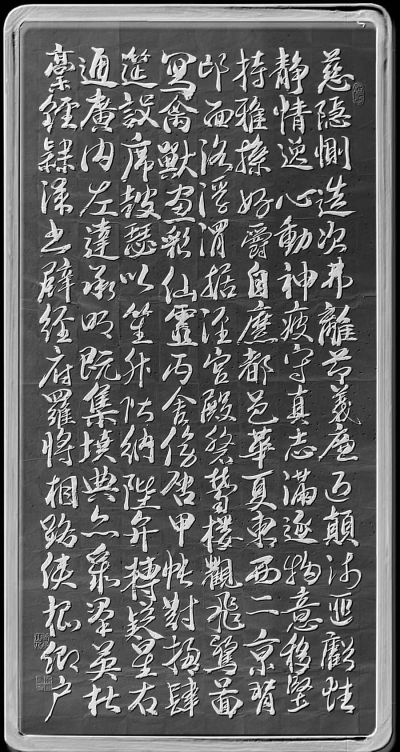 慈隱惻造次弗離節義廉退顛沛匪虧性
靜情逸心動神疲守真志滿逐物意移堅
持雅操好爵自縻都邑華夏東西二京背
邙面洛浮渭據涇宮殿盤鬱樓觀飛驚圖
寫禽獸畫彩仙靈丙舍傍啟甲帳對楹肆
筵設席鼓瑟吹笙升階納陛弁轉疑星右
通廣內左達承明既集墳典亦聚群英杜
稾鍾隸漆書壁經府羅將相路俠槐卿戶